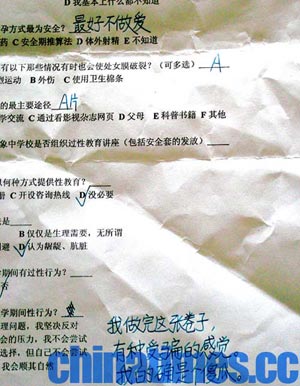 D 我基本上什么都不知道
孕方式最为安全? 最好不做爱
药 C 安全期推算法 D 体外射精 E 不知道
有以下那些情况有时也会使处女膜破裂? (可多选) A
烈运动 B 外伤 C 使用卫生棉条
的最主要途径 A片
学交流 C 通过看影视杂志网页 D 父母 E 科普书籍 F 其他
象中学校是否组织过性教育讲座 (包括安全套的发放)
以何种方式提供性教育?
册 C 开设咨询热线 D 没必要
法是
B 仅仅是生理需要, 无所谓
避 D 认为龌龊、肮脏
学期间有过性行为?
B 否
学期间性行为?
理问题, 我坚决反对
会的压力, 我不会尝试
选择, 但自己不会尝试
我会顺其自然
我做完这张卷子,
有种受骗的感觉
chinanews.com